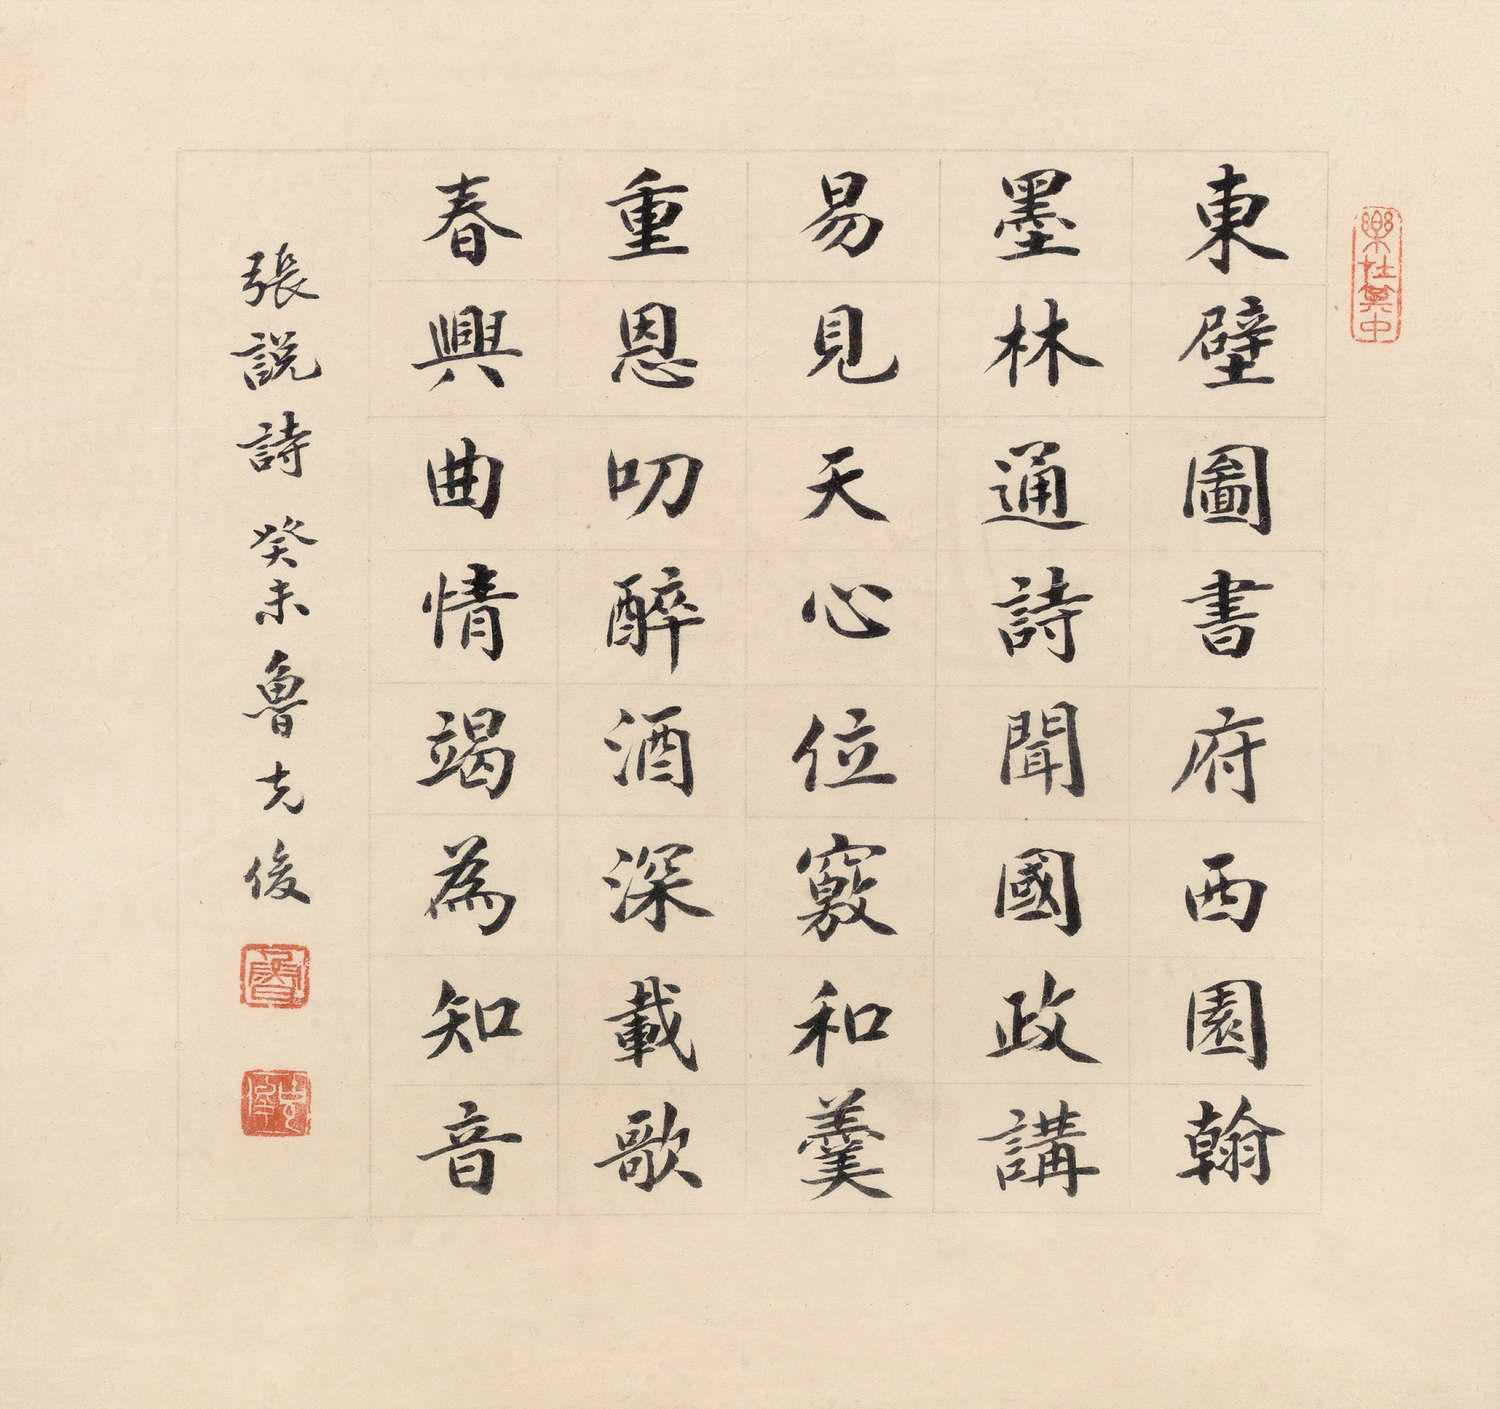 樂在其中
東壁圖書府西園翰
墨林通詩聞國政講
易見天心位竅和羹
重恩叨醉酒深載歌
春興曲情竭為知音
張説詩癸未魯克俊
魯
克俊